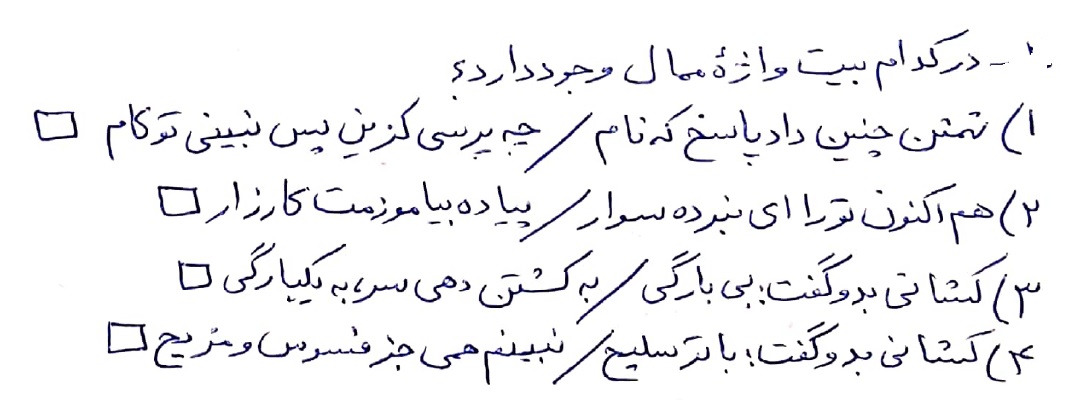 ۱۰- در کدام بیت واژهٔ ممال وجود دارد؟
۱) تهمتن چنین داد پاسخ که نام / چه پرسی کزین پس نبینی تو کام □
۲) هم اکنون تو را ای نبرده سوار / پیاده بیاموزمت کارزار □
۳) کشانی بدو گفت: بی بارگی / به کشتن دهی سر، به یکبارگی □
۴) کشانی بدو گفت: با تو سلیح / نبینم همی جز فسوس و مزیح □